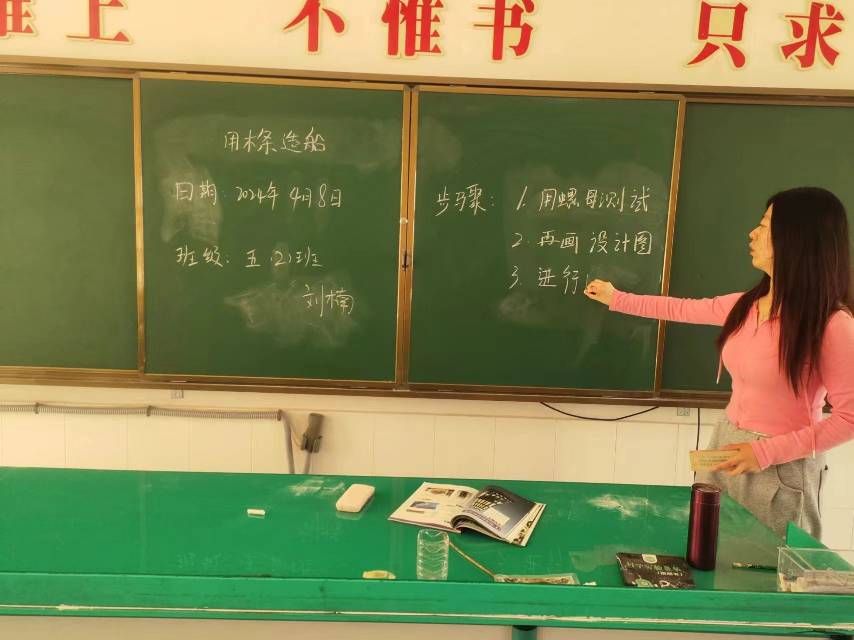 上 不惟书 只求
用木条造船
日期: 2024年4月8日
班级: 五(2)班
刘楠
步骤: 1. 用螺母测试
2. 再画设计图
3. 进行